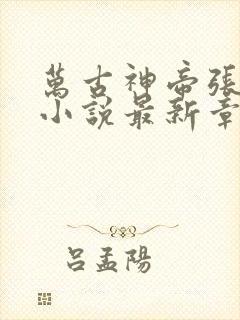 萬古神帝張
小說最新章
呂孟陽